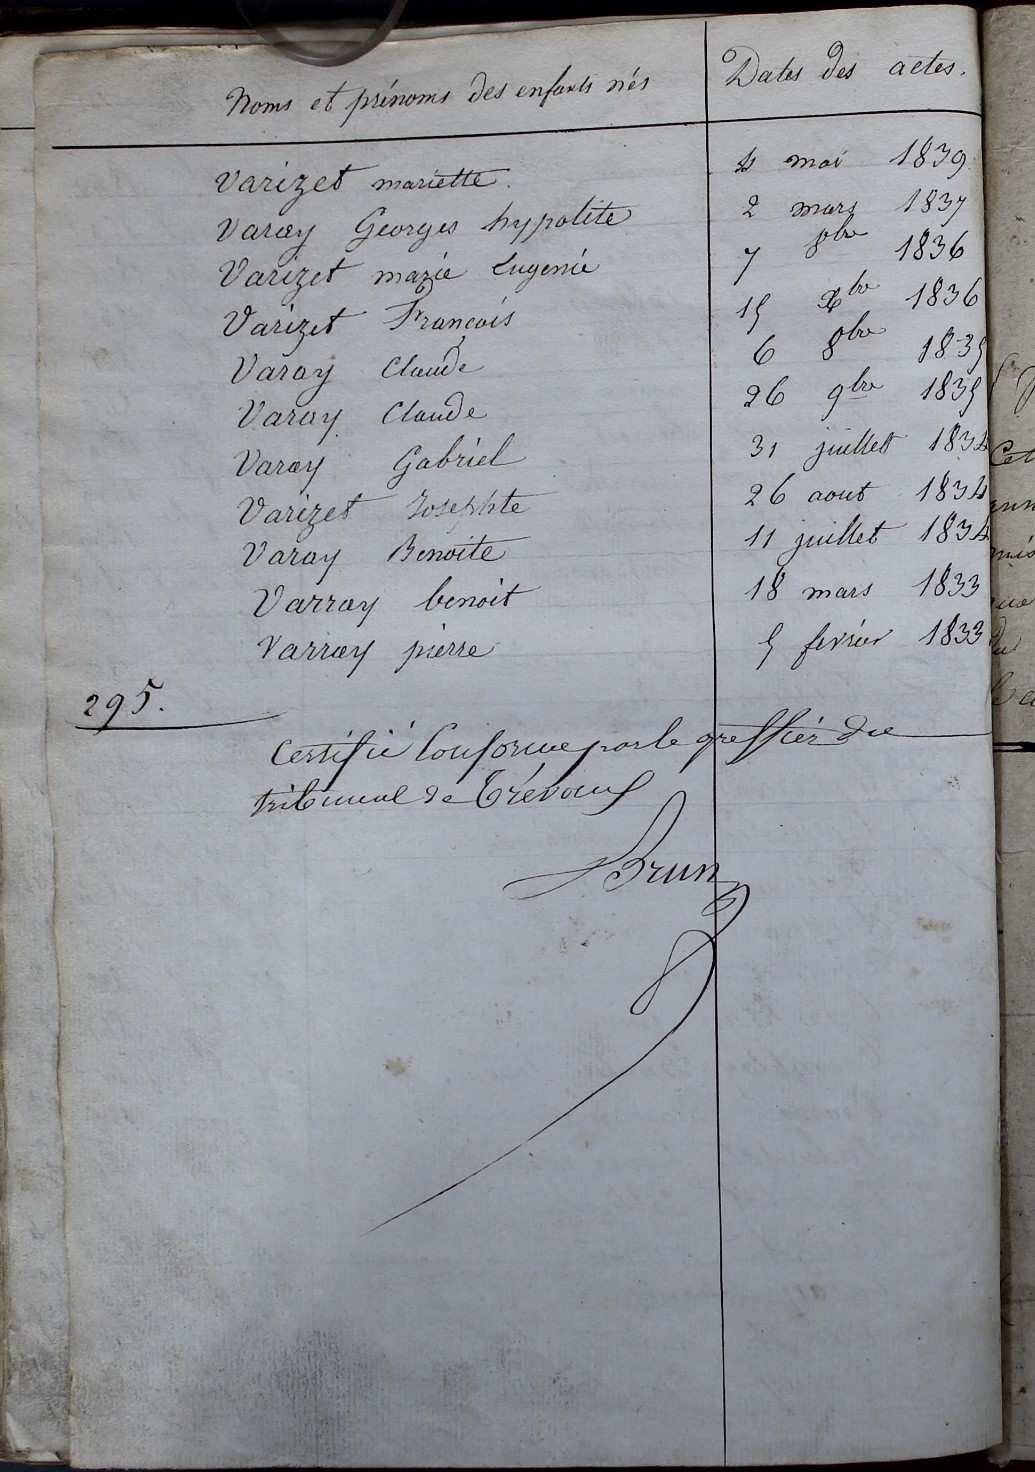 Noms et prénoms des enfants nés Dates des actes.
Varizet mariette. 4 mai 1839
Varay Georges hypolite 2 mars 1837
Varizet marie Eugenie 7 8bre 1836
Varizet François 15 Xbre 1836
Varay Claude 6 8bre 1835
Varay Claude 26 9bre 1835
Varay Gabriel 31 juillet 1834
Varizet Josephte 26 aout 1834
Varay Benoite 11 juillet 1834
Varray benoit 18 mars 1833
Varray pierre 5 fevrier 1833
295.
Certifié Conforme par le greffier du
tribunal de Trévoux
Brun